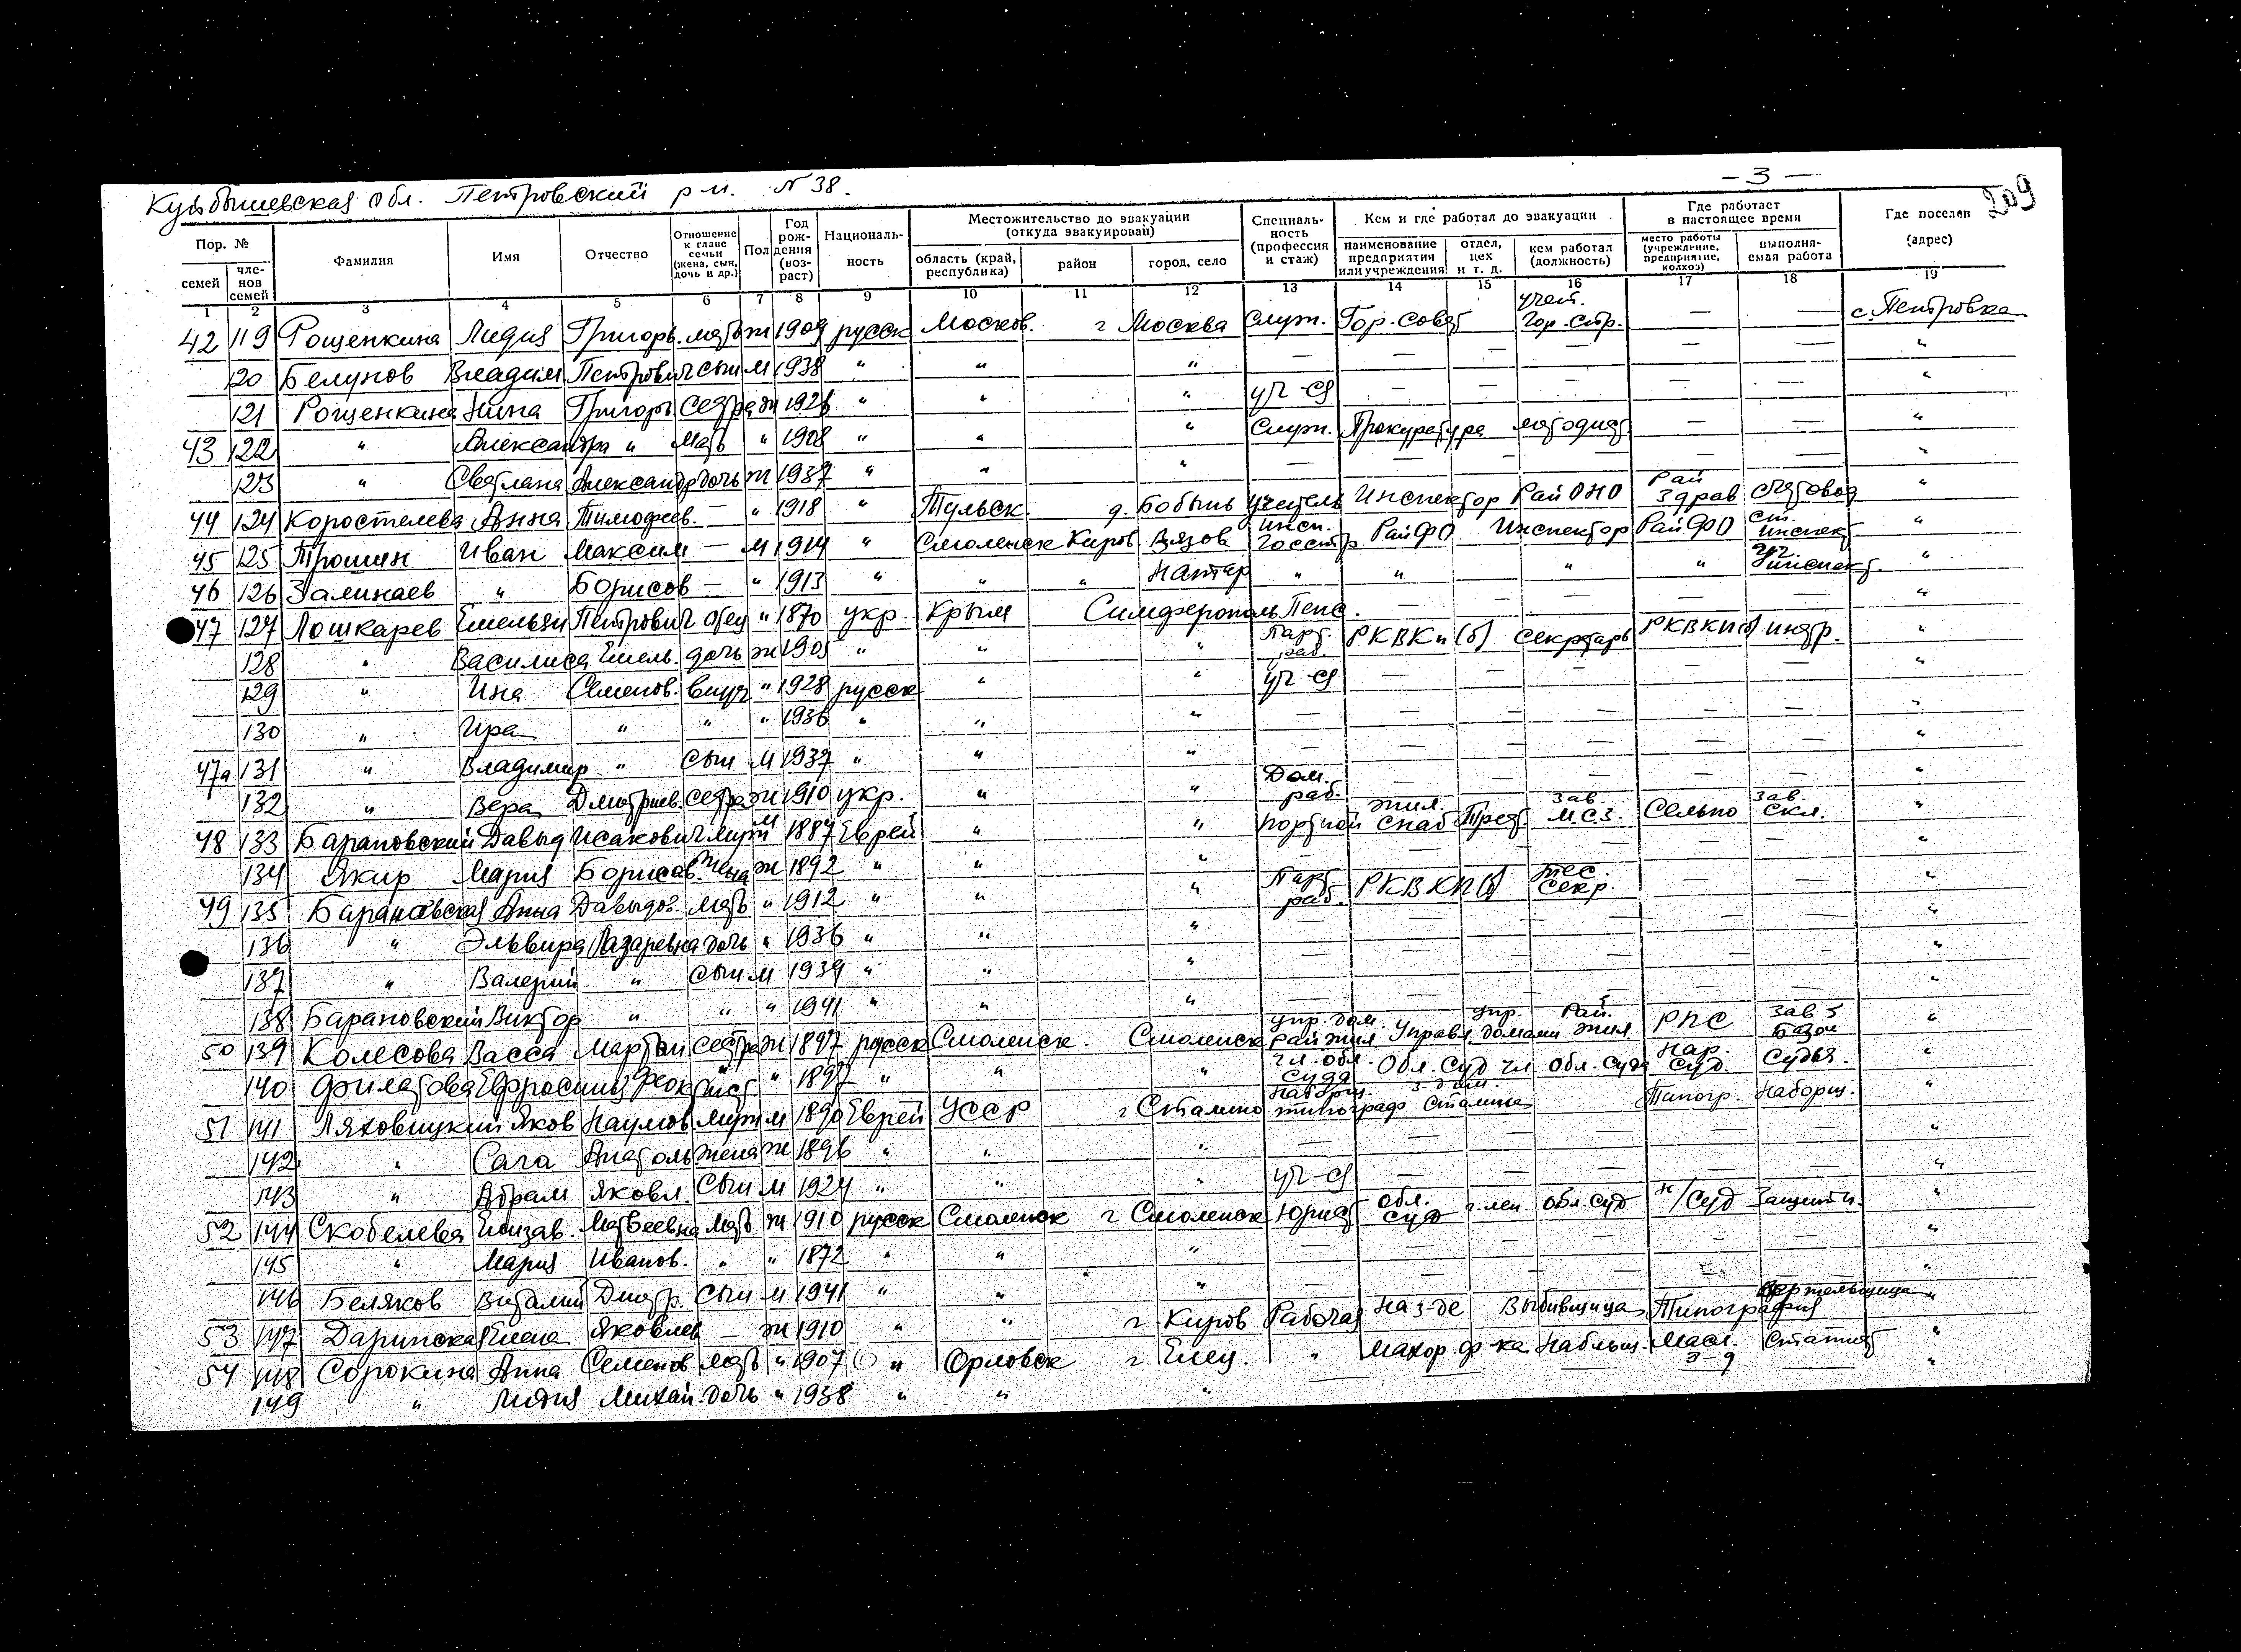 Куйбышевская обл. Петровский р-н. N 38.
- 3 -
209
Пор. № Фамилия Имя Отчество Отношение к главе семьи (жена, сын, дочь и др.) Пол Год рождения (возраст) Националь-ность Местожительство до эвакуации (откуда эвакуирован) Специаль-ность (профессия и стаж) Кем и где работал до эвакуации Где работает в настоящее время Где поселен (адрес)
семей чле-нов семей область (край, республика) район город, село наименование предприятия или учреждения отдел, цех и т. д. кем работал (должность) место работы (учреждение, предприятие, колхоз) выполня-емая работа
1 2 3 4 5 6 7 8 9 10 11 12 13 14 15 16 17 18 19
42 119 Рощенкина Лидия Григорь. мать ж 1909 русск Москов. г Москва Служ. Гор. совет учет. Гор. стр. — — с. Петровка
120 Белунов Владим. Петрович сын м 1938 " " " — — — — — — "
121 Рощенкина Нина Григорь сестра ж 1926 " " " уч-ся — — — — — "
43 122 " Александра " мать " 1908 " " " Служ. Прокуратура — — "
123 " Светлана Александр дочь ж 1937 " " " — — — — — — "
44 124 Коростелева Анна Тимофеев. — " 1918 " Тульск д. Бобыль учитель Инспектор РайОНО Рай здрав счетовод "
45 125 Трошин Иван Максим — м 1914 " Смоленск Киров Вязов инсп. госстр РайФО Инспектор РайФО ст. инспект "
46 126 Залинаев " Борисов — " 1913 " " " " " " " инспект. "
47 127 Лошкарев Емельян Петрович отец " 1870 укр. Крым Симферополь Пенс. — — — — — "
128 " Василиса Емель. дочь ж 1905 " " " Парт. раб. РКВКп(б) секретарь РКВКП(б) инстр. "
129 " Ина Семенов. внуч " 1928 русск " " уч-ся — — — — — "
130 " Ира " " " 1936 " " " — — — — — — "
47а 131 " Владимир " сын м 1937 " " " — — — — — — "
132 " Вера Дмитриев. сестра ж 1910 укр. " " Дом. раб. — — — — — "
48 133 Барановский Давыд Исакович муж м 1887 Еврей " " портной жил. снаб Трест зав. М.С.З. Сельпо зав. скл. "
134 Якир Мария Борисов. жена ж 1892 " " " — — — — — — "
49 135 Барановская Анна Давыдов. мать " 1912 " " " Парт раб. РКВКП(б) тес. секр. — — "
136 " Эльвира Лазаревна дочь " 1936 " " " — — — — — — "
137 " Валерий " сын м 1939 " " " — — — — — — "
138 Барановский Виктор " " " 1941 " " " — — — — — — "
50 139 Колесова Васса Мартын сестра ж 1897 русск Смоленск. Смоленск упр. дом. райжил Управл. домами упр. Рай. жил РПС зав базой "
140 Филатова Ефросинья Феоктист " " 1897 " " " чл. обл. суда Обл. Суд чл Обл. суда Нар. суд судья. "
51 141 Ляховицкий Яков Наумов муж м 1890 Еврей УССР г Сталино Наборщ. типограф з-д им. Сталина Типогр. Наборщ. "
142 " Сага Анатоль жена ж 1896 " " " — — — — — — "
143 " Абрам Яковл. сын м 1924 " " " уч-ся — — — — — "
52 144 Скобелева Елизав. Матвеевна мать ж 1910 русск Смоленск г Смоленск Юрист Обл. суд г. лен. обл. суд н/суд Защитн. "
145 " Мария Иванов. " " 1872 " " " — — — — — — "
146 Беляков Виталий Дмитр. сын м 1941 " " " — — — — — — "
53 147 Даринская Елена Яковлев — ж 1910 " " г Киров Рабочая На з-де Выбивщица Типография вертельщица "
54 148 Сорокина Анна Семенов мать " 1907 " Орловск г Елец. " Махор. ф-ка Набльщ. Масл. з-д "
149 " Лидия Михай. дочь " 1938 " " " — — — — "